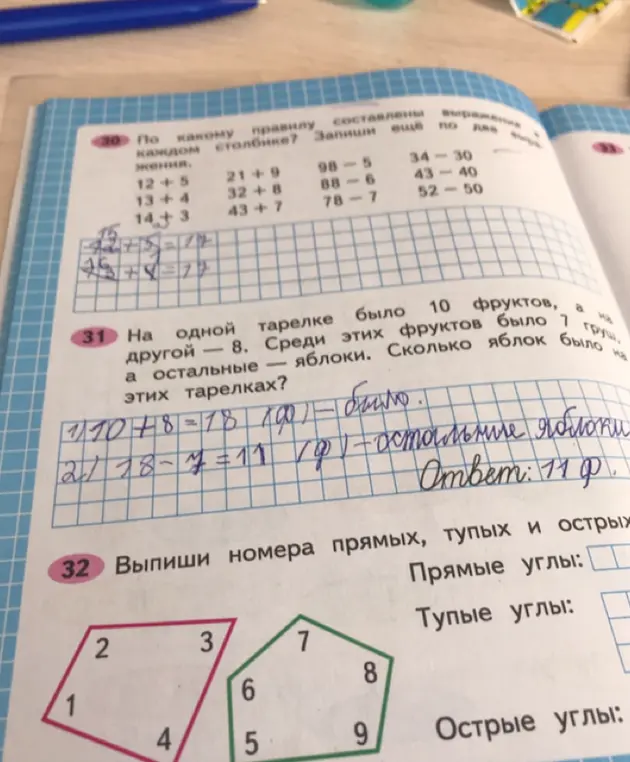 30 По какому правилу составлены выражения в
каждом столбике? Запиши ещё по два выра-
жения.
12 + 5 21 + 9 98 − 5 34 − 30
13 + 4 32 + 8 88 − 6 43 − 40
14 + 3 43 + 7 78 − 7 52 − 50
+ = 17
+ = 17
31 На одной тарелке было 10 фруктов, а на
другой — 8. Среди этих фруктов было 7 груш,
а остальные — яблоки. Сколько яблок было на
этих тарелках?
1) 10 + 8 = 18 (ф) − было.
2) 18 − 7 = 11 (ф) − остальные яблоки
Ответ: 11 ф.
32 Выпиши номера прямых, тупых и острых
Прямые углы:
Тупые углы:
Острые углы:
2 3 1 4
7 6 8 5 9
33